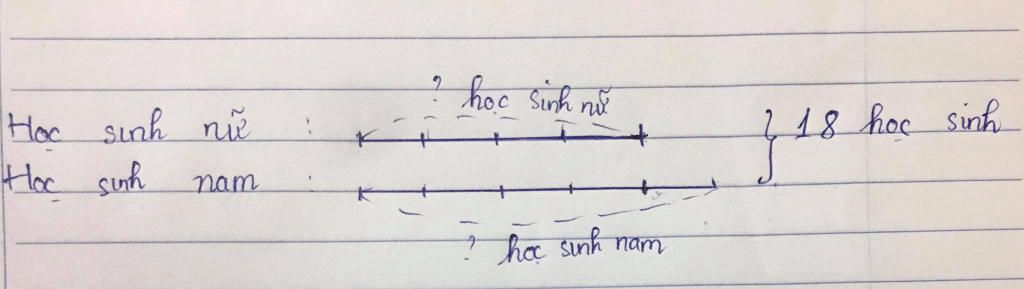 ? học sinh nữ
Học sinh nữ : } 18 học sinh
Học sinh nam :
? học sinh nam